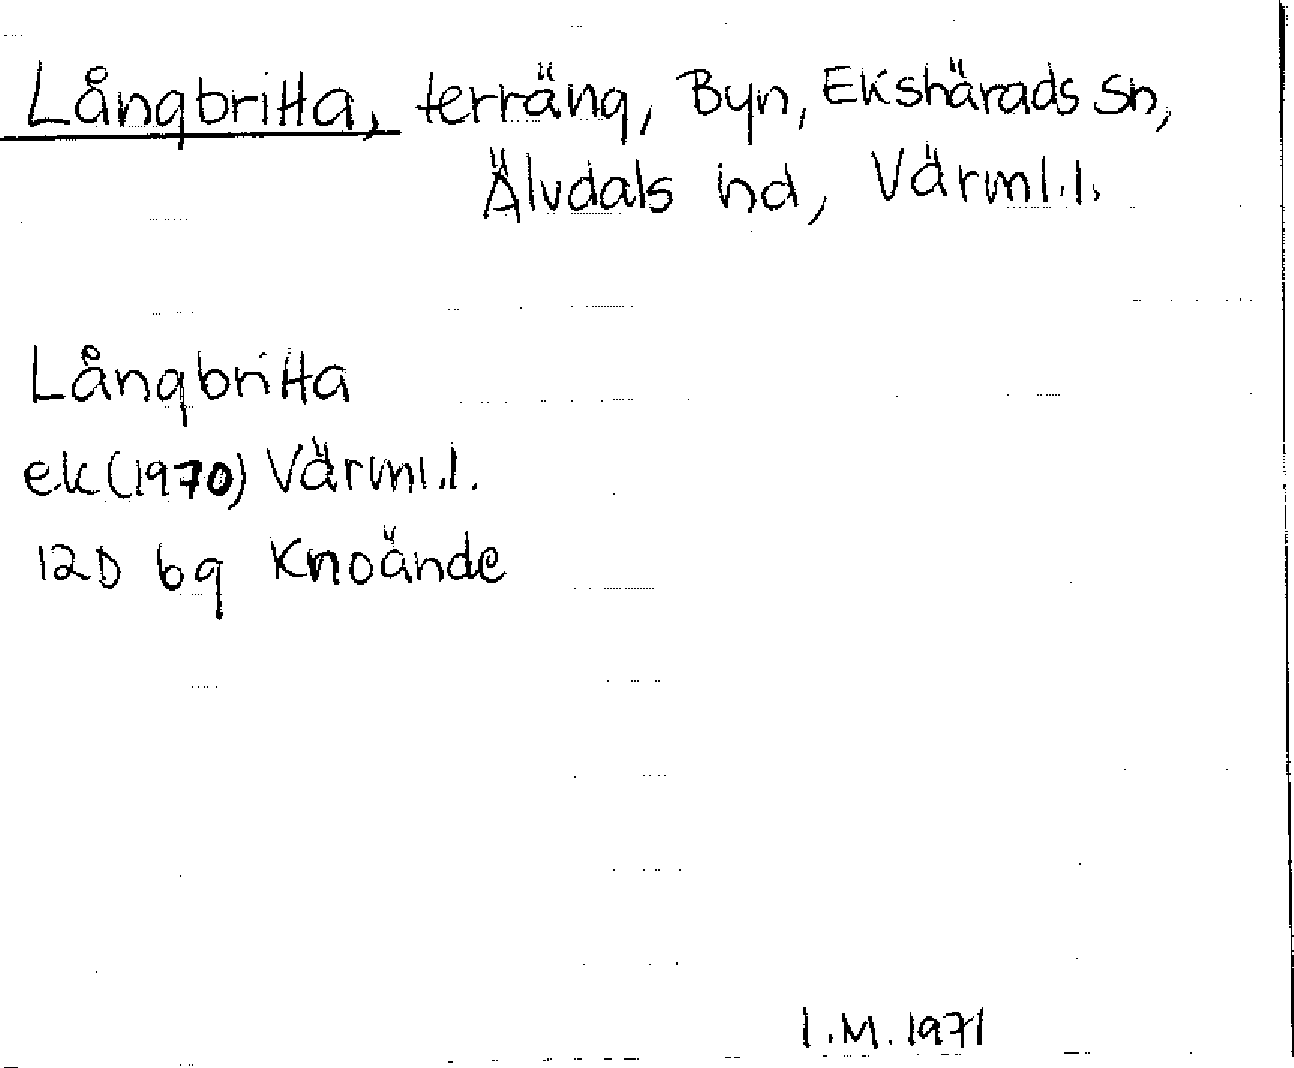 Långbritta, terräng, Byn, Ekshärads sn,
Älvdals hd, Värml.l.
Långbritta
ek (1970) Värml.l.
12D 6g Knoände
I.M. 1971